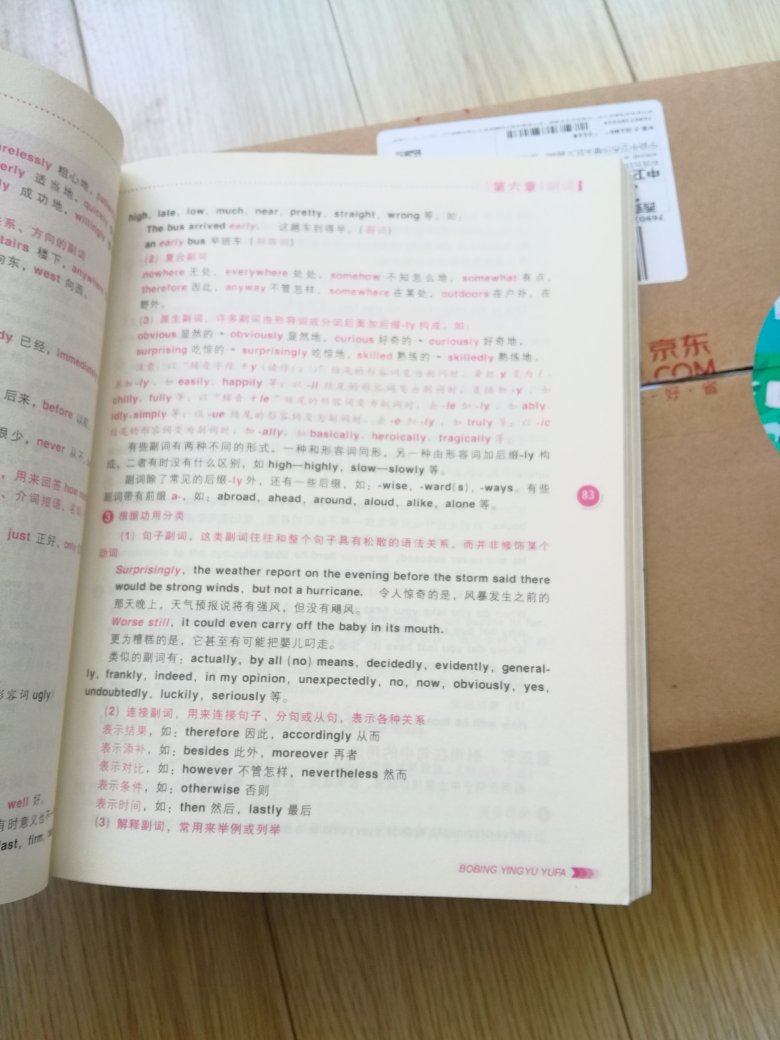 relessly 粗心地，
erly 适当地，quickly
ly 成功地，willingly
系、方向的副词
tairs 楼下，anywhere
向东，west 向西。
dy 已经，immediately
后来，before 以前
很少，never 从不
，用来回答 how
、介词短语、名词
just 正好，only
形容词 ugly)
well 好，
有时意义也不
last，firm，
第六章 副词
high，late，low，much，near，pretty，straight，wrong 等。如：
The bus arrived early. 这趟车到得早。（副词）
an early bus 早班车（形容词）
(2) 复合副词
nowhere 无处，everywhere 处处，somehow 不知怎么地，somewhat 有点，
therefore 因此，anyway 不管怎样，somewhere 在某处，outdoors 在户外，在
野外。
(3) 派生副词，许多副词由形容词或分词后面加后缀-ly 构成，如：
obvious 显然的 - obviously 显然地，curious 好奇的 - curiously 好奇地，
surprising 吃惊的 - surprisingly 吃惊地，skilled 熟练的 - skilledly 熟练地。
注意：以“辅音字母 + y 结尾的形容词变为副词时，要把 y 变为 i，
再加 -ly，如 easily，happily 等；以 -ll 结尾的形容词变为副词时，直接加 -y，如
chilly，fully 等；以“辅音 + le”结尾的形容词变为副词时，去 -le 加 -ly，如 ably，
idly，simply 等；以 -ue 结尾的形容词变为副词时，去 -e 加 -ly，如 truly 等；以 -ic
结尾的形容词变为副词时，加 -ally，如 basically，heroically，tragically 等。
有些副词有两种不同的形式，一种和形容词同形，另一种由形容词加后缀-ly 构
成，二者有时没有什么区别，如 high—highly，slow—slowly 等。
副词除了常见的后缀-ly 外，还有一些后缀，如：-wise，-ward(s)，-ways。有些
副词带有前缀 a-，如：abroad，ahead，around，aloud，alike，alone 等。
83
3 根据功用分类
(1) 句子副词，这类副词往往和整个句子具有松散的语法关系，而并非修饰某个
动词
Surprisingly，the weather report on the evening before the storm said there
would be strong winds，but not a hurricane. 令人惊奇的是，风暴发生之前的
那天晚上，天气预报说将有强风，但没有飓风。
Worse still，it could even carry off the baby in its mouth.
更为糟糕的是，它甚至有可能把婴儿叼走。
类似的副词有：actually，by all (no) means，decidedly，evidently，general-
ly，frankly，indeed，in my opinion，unexpectedly，no，now，obviously，yes，
undoubtedly，luckily，seriously 等。
(2) 连接副词，用来连接句子、分句或从句，表示各种关系
表示结果，如：therefore 因此，accordingly 从而
表示添补，如：besides 此外，moreover 再者
表示对比，如：however 不管怎样，nevertheless 然而
表示条件，如：otherwise 否则
表示时间，如：then 然后，lastly 最后
(3) 解释副词，常用来举例或列举
BOBING YINGYU YUFA
京东
.COM
·好·省